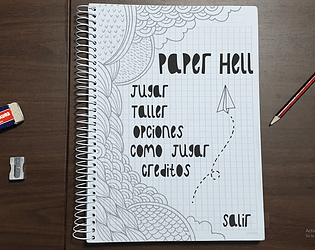 PAPER HELL
JUGAR
TALLER
OPCIONES
COMO JUGAR
CREDITOS
SALIR